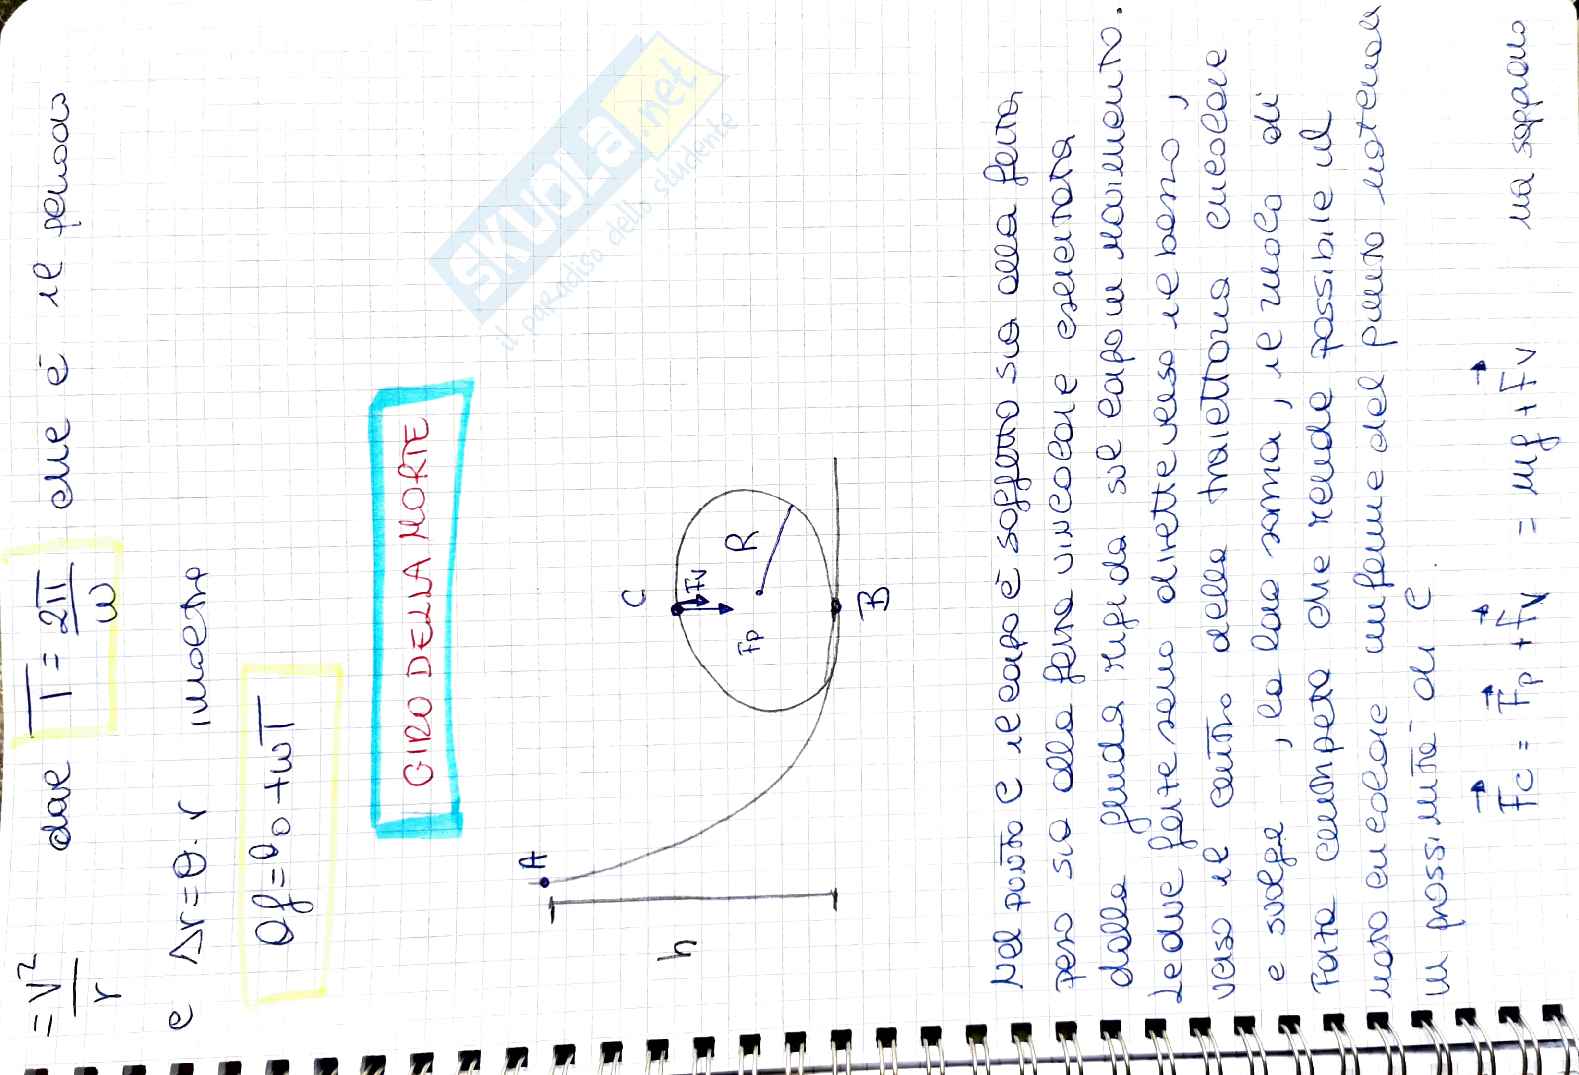 = v²/r dove T = 2π/ω che è il periodo
e Δr = θ · r inoltre
θf = θ0 + ωT
GIRO DELLA MORTE
A
h
C
Fv
Fp
R
B
Nel punto C il corpo è soggetto sia alla forza
peso sia alla forza vincolare esercitata
dalla guida rigida sul corpo in movimento.
Le due forze sono dirette verso il basso,
verso il centro della traiettoria circolare
e svolge, la loro somma, il ruolo di
Forza centripeta che rende possibile il
moto circolare uniforme del punto materiale
in prossimità di C.
Fc = Fp + Fv = mg + Fv ma sappiamo
SKUOLA.net
il paradiso dello studente